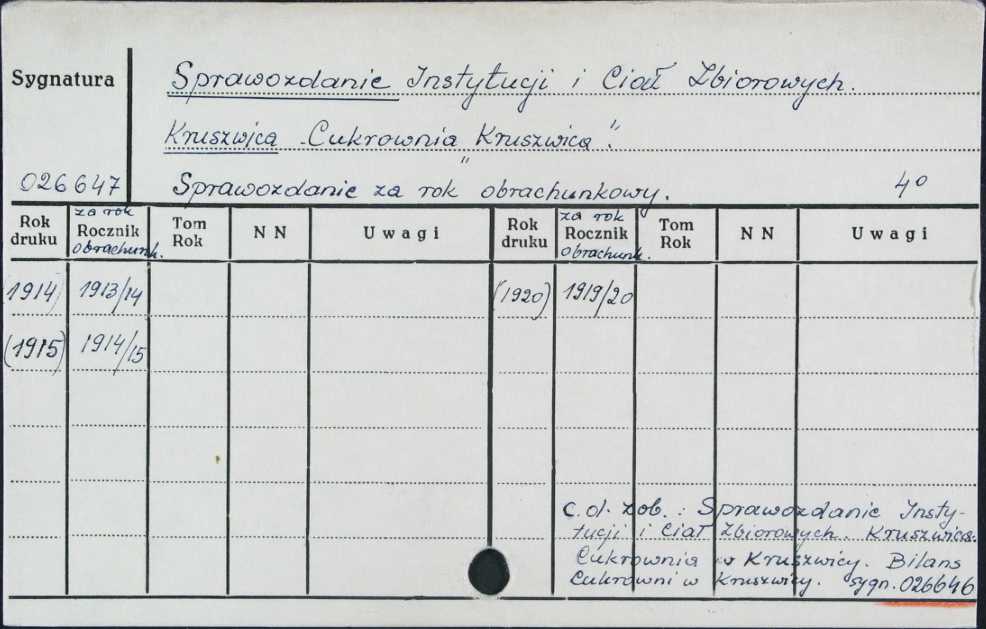 Sygnatura
Sprawozdanie Instytucji i Ciał Zbiorowych.
Kruszwica „Cukrownia Kruszwica".
026647
Sprawozdanie za rok obrachunkowy. 4°
Rok druku
za rok Rocznik obrachunk.
Tom Rok
NN
Uwagi
Rok druku
za rok Rocznik obrachunk.
Tom Rok
NN
Uwagi
1914) 1913/14 (1920) 1919/20
(1915) 1914/15
c.d. zob.: Sprawozdanie Insty-
tucji i Ciał Zbiorowych. Kruszwica.
Cukrownia w Kruszwicy. Bilans
Cukrowni w Kruszwicy. sygn. 026646